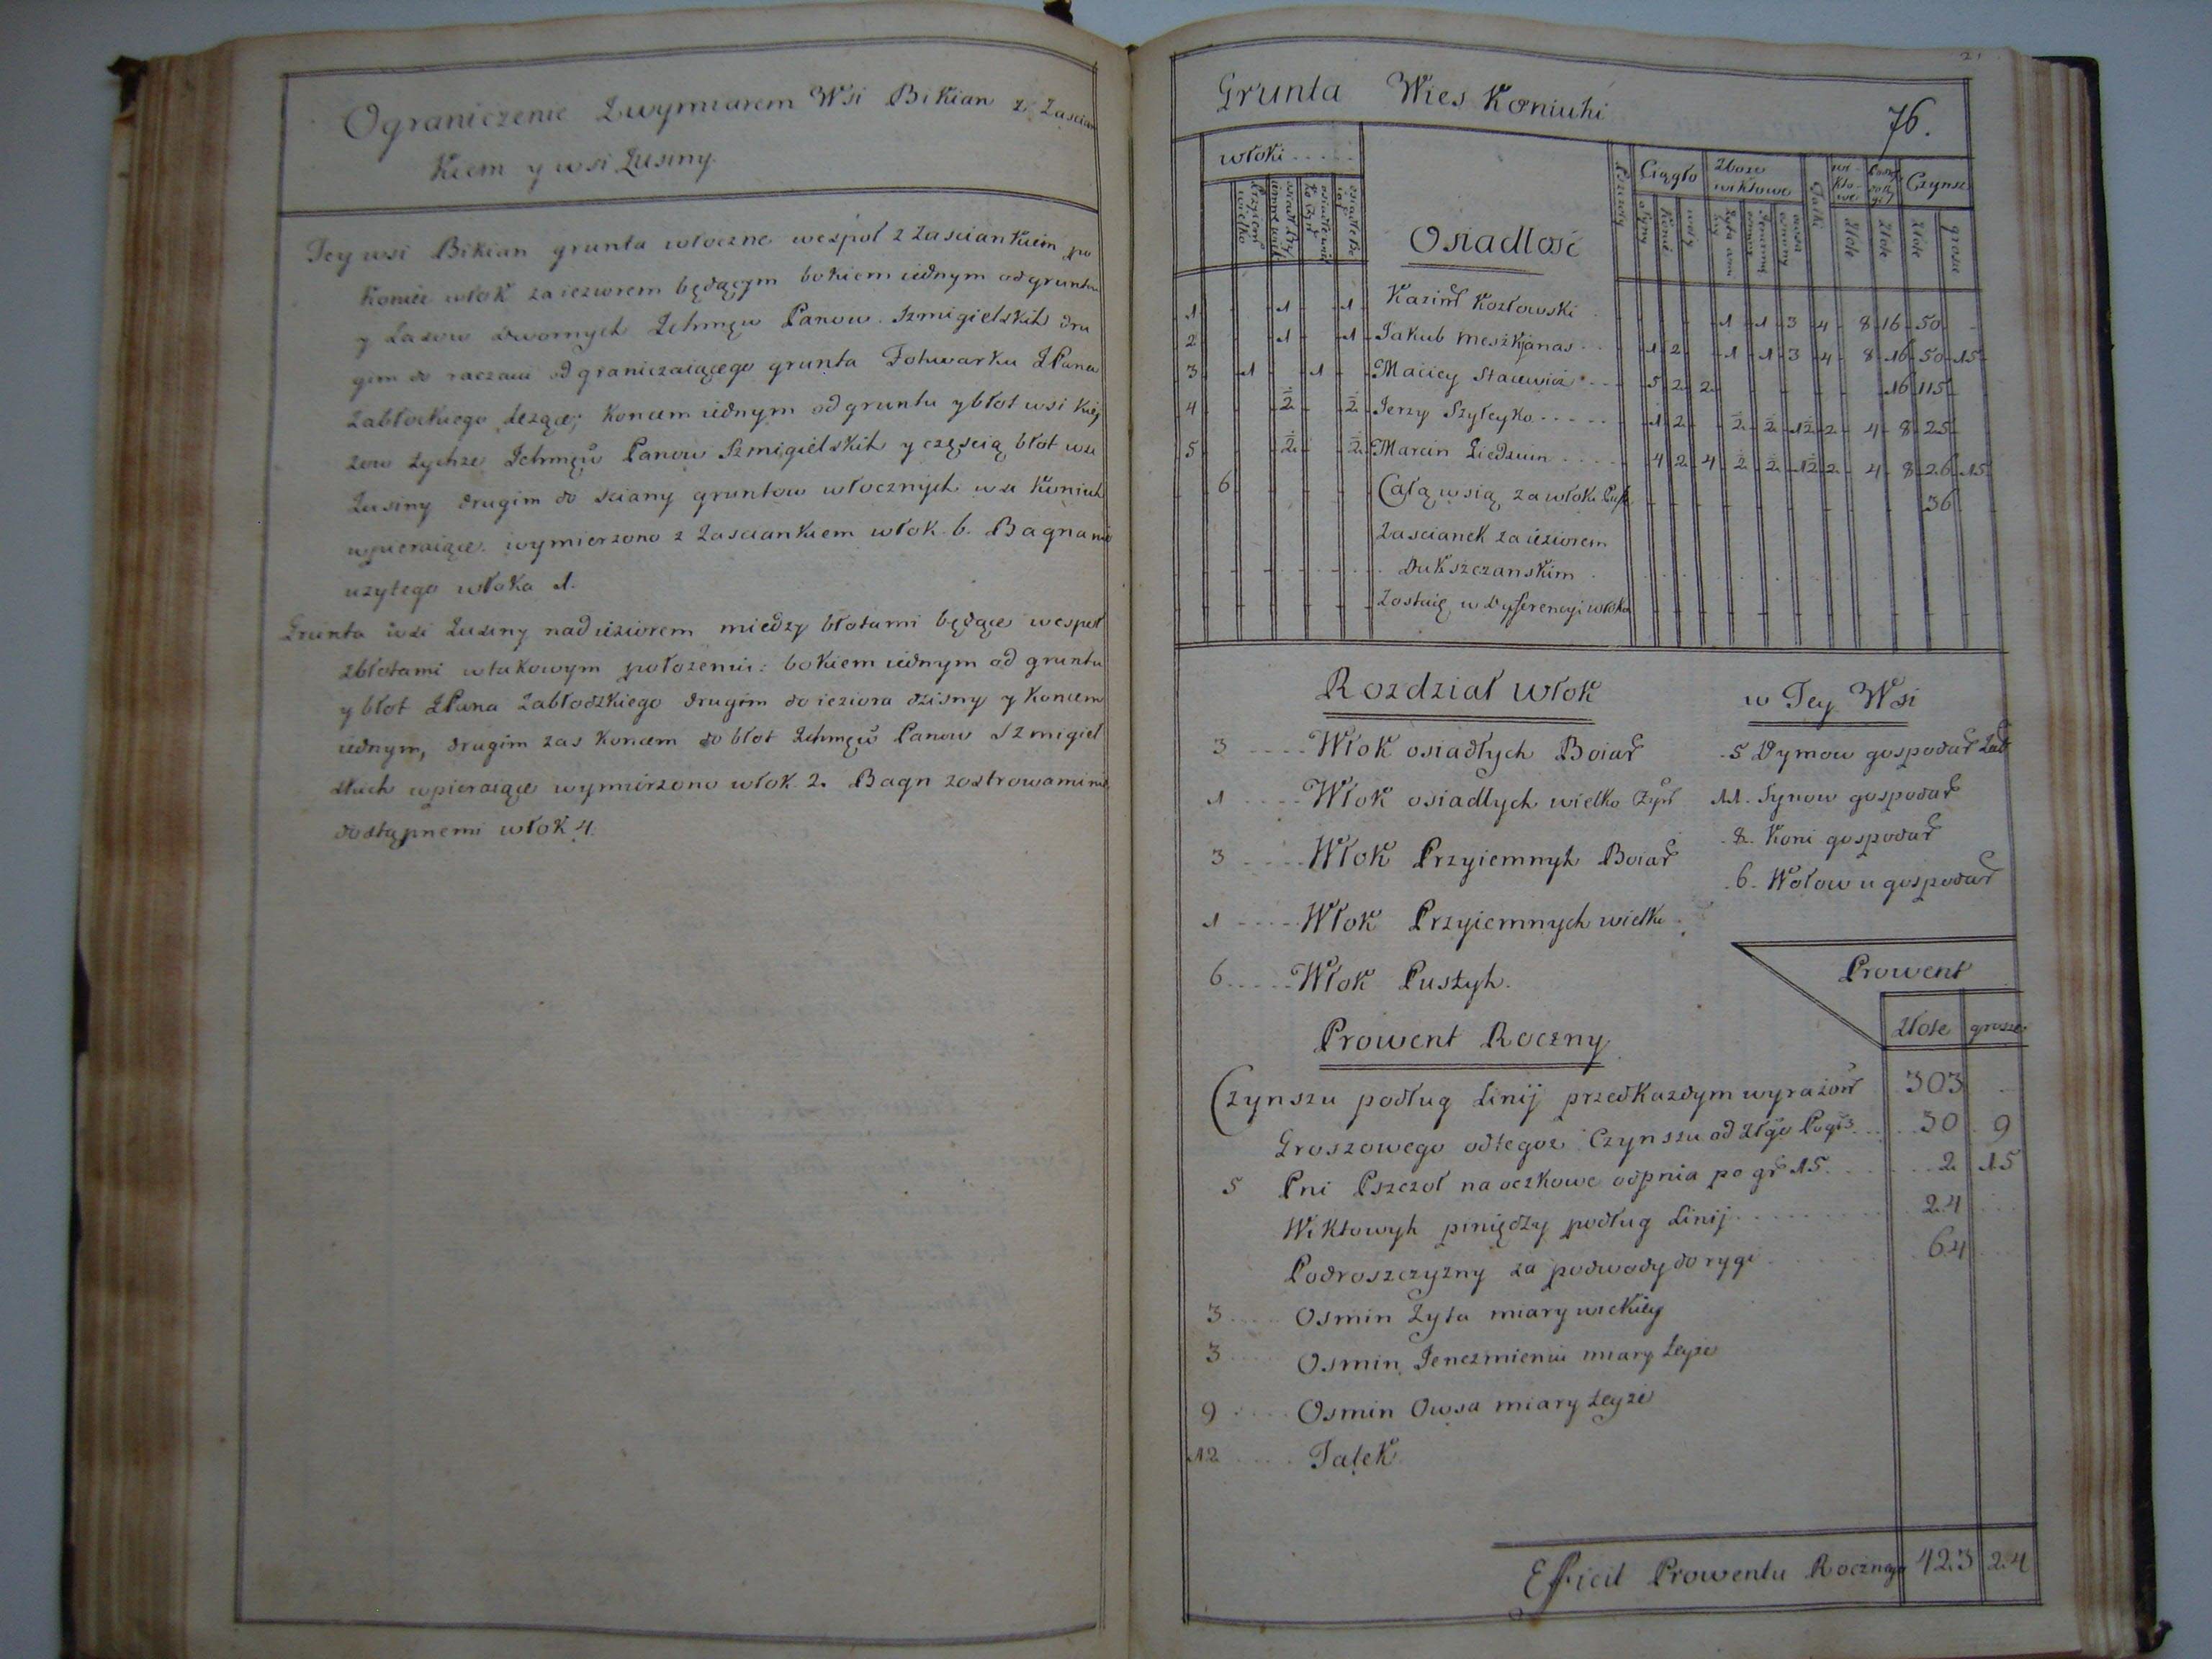 Ograniczenie Zwymiarem Wsi Bikian z Zascian
Kiem y wsi Zusiny.
Tey wsi Bikian grunta włoczne wespoł z Zasciankiem po
koniec włok za ieziorem będącym bokiem iednym od gruntow
y Lasow dwornych Ichmęw Panow Szmigielskich dru
gim do raczaiu odgraniczaiącego grunta Folwarku JPana
Zabłockiego Leżące; koncem iednym od gruntu y błot wsi
tychże Ichmęw Panow Szmigielskich y częscią błot wsi
Zusiny drugim do sciany gruntow włocznych wsi Koniuch
wpieraiące. wymierzono z Zasciankiem włok. 6. Bagna nie
użytego włoka 1.
Grunta wsi Zusiny nad ieziorem między błotami będące wespoł
zbłotami wtakowym położeniu: bokiem iednym od gruntu
y błot JPana Zabłodzkiego drugim do ieziora dzisny y koncem
iednym, drugim zas koncem do błot Ichmęw Panow Szmigiel
skich wpieraiące wymierzono włok. 2. Bagn zostrowami nie
dostąpnemi włok 4.
21
Grunta Wies Koniuhi
76.
włoki
Osiadłosć
Ciągło
Zboże wiktowe
Czynsz
Synow
Konie
woły
Złote
Złote
Złote
grosze
1 - 1 - 1 Kazimr Kozłowski - - - - 1 1 3 4 8 16 50 -
2 - 1 - 1 Jakub Meszkjanas - 1 2 - 1 1 3 4 8 16 50 15
3 1 - 1 - Maciey Stacewicz - 5 2 2 - - - - - 16 115 -
4 - ½ - ½ Jerzy Szyleyko - 1 2 - ½ ½ 1½ 2 4 8 25 -
5 - ½ - ½ Marcin Ziedzium - 4 2 4 ½ ½ 1½ 2 4 8 26 15
6 Całą wsią za włoki Pust 36
Zascianek za ieziorem
Dukszczanskim
Zostaię w Dyferencyi włoka
Rozdział włok
3 Włok osiadłych Boiar
1 Włok osiadłych wielko Czyn
3 Włok Przyiemnyh Boiar
1 Włok Przyiemnych wielko
6 Włok Pustyh.
w Tey Wsi
5 Dymow gospodar
11. Synow gospodar
8. Koni gospodar
6. Wołow u gospodar
Prowent
Złote grosze
Prowent Roczny
Czynszu podług Linij przedkazdym wyrażon 303
Groszowego odtegoż Czynszu od złgo Pogr 3 30 9
5 Pni Pszczoł na oczkowe odpnia po gr 15 2 15
Wiktowyh piniędzy podług Linij 24
Podroszczyzny za podwody do rygi 64
3 Osmin Żyta miary wielkiey
3 Osmin Jenczmieniu miary teyże
9 Osmin Owsa miary teyże
12 Talek
Efficit Prowentu Rocznego 423 24